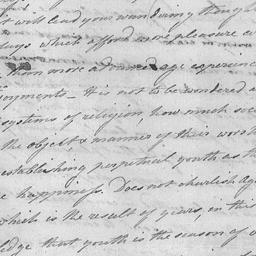 it will lead your wandering thoughts
which afford more pleasure
than more advanced age experience
It is not to be wondered
systems of religion how much
the object & manner of their
establishing perpetual youth as the
happiness. Does not churlish Age
which is the result of years, in this
edge that youth is the season of